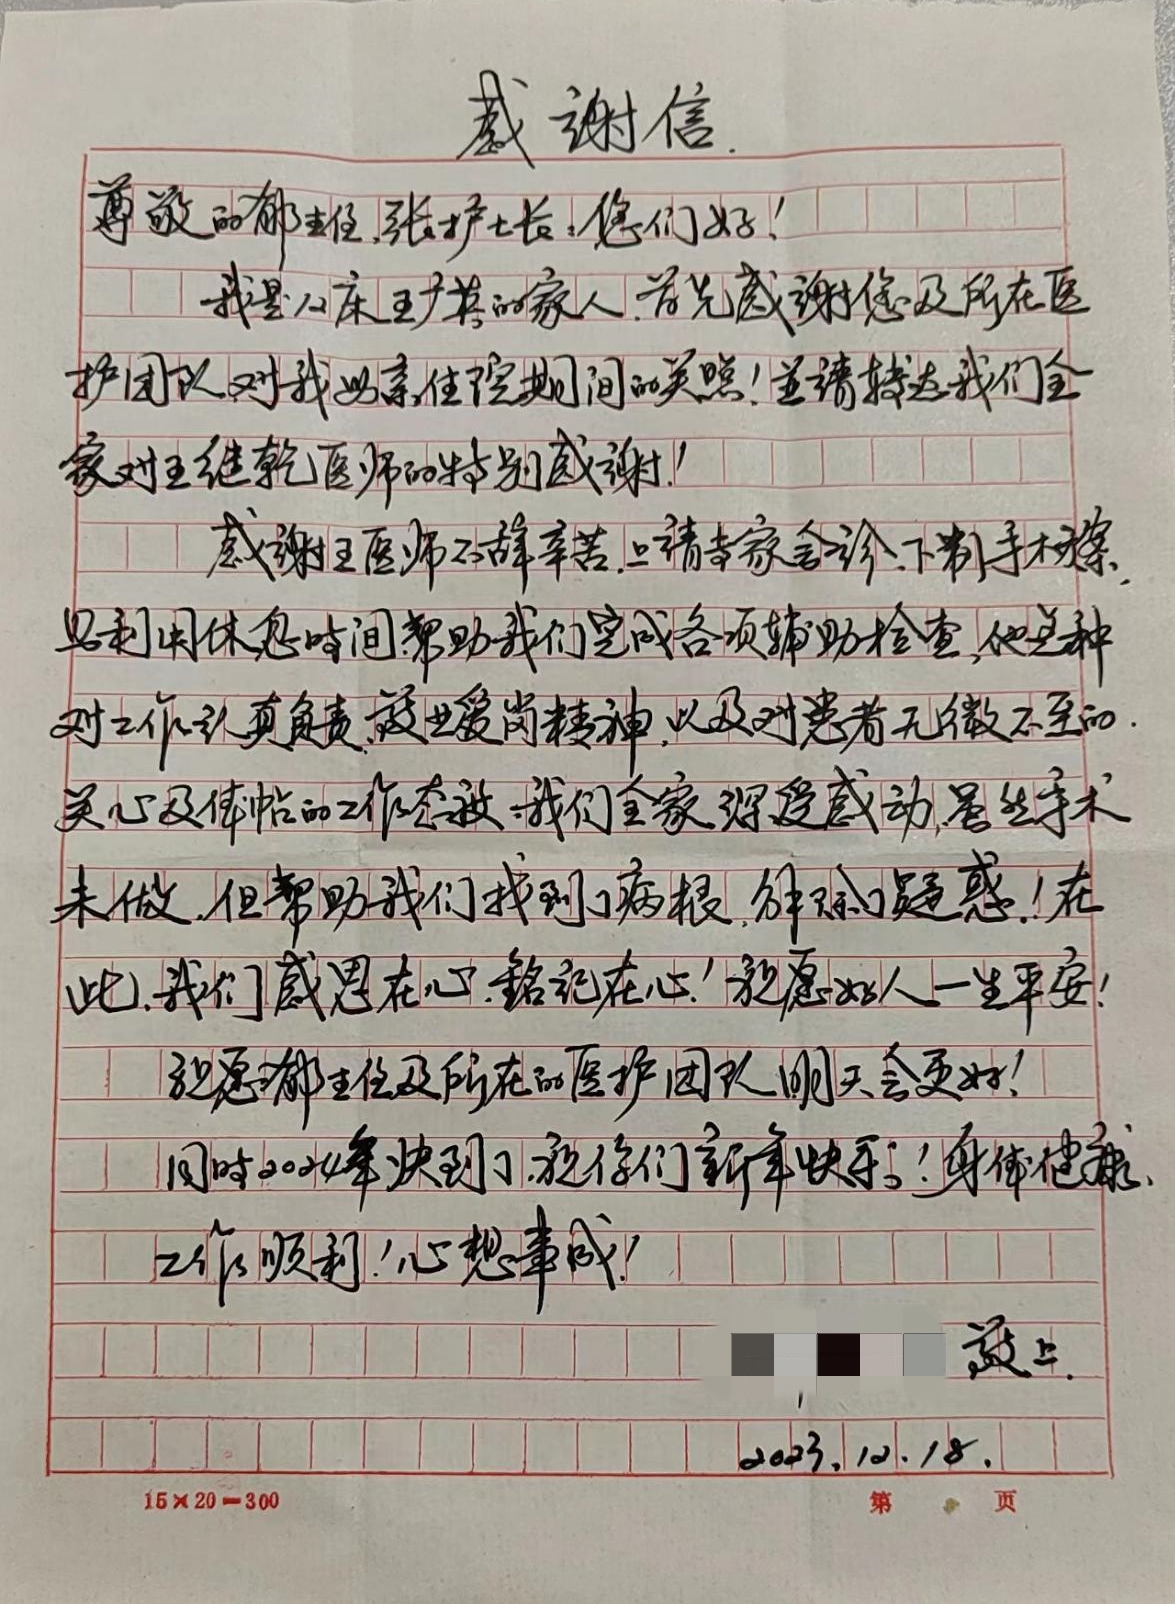 感謝信.
尊敬的郁主任、张护士长：您们好！
我是12床王广英的家人.首先感謝您及所在医
护团队对我母亲住院期间的关照！並請转达我们全
家对王继乾医师的特别感謝！
感謝王医师不辞辛苦.上請专家会诊、下制手术方案、
且利用休息时间帮助我们完成各项辅助检查，他这种
对工作认真負责、敬业爱岗精神，以及对患者无微不至的
关心及体帖的工作态度.我们全家深受感动，虽然手术
未做，但帮助我们找到了病根，解除了疑惑！在
此、我们感恩在心.銘記在心！祝愿好人一生平安！
祝愿郁主任及所在的医护团队明天会更好！
同时2024年快到了.祝你们新年快乐！身体健康、
工作顺利！心想事成！
敬上.
2023.12.18.
15×20=300
第 页